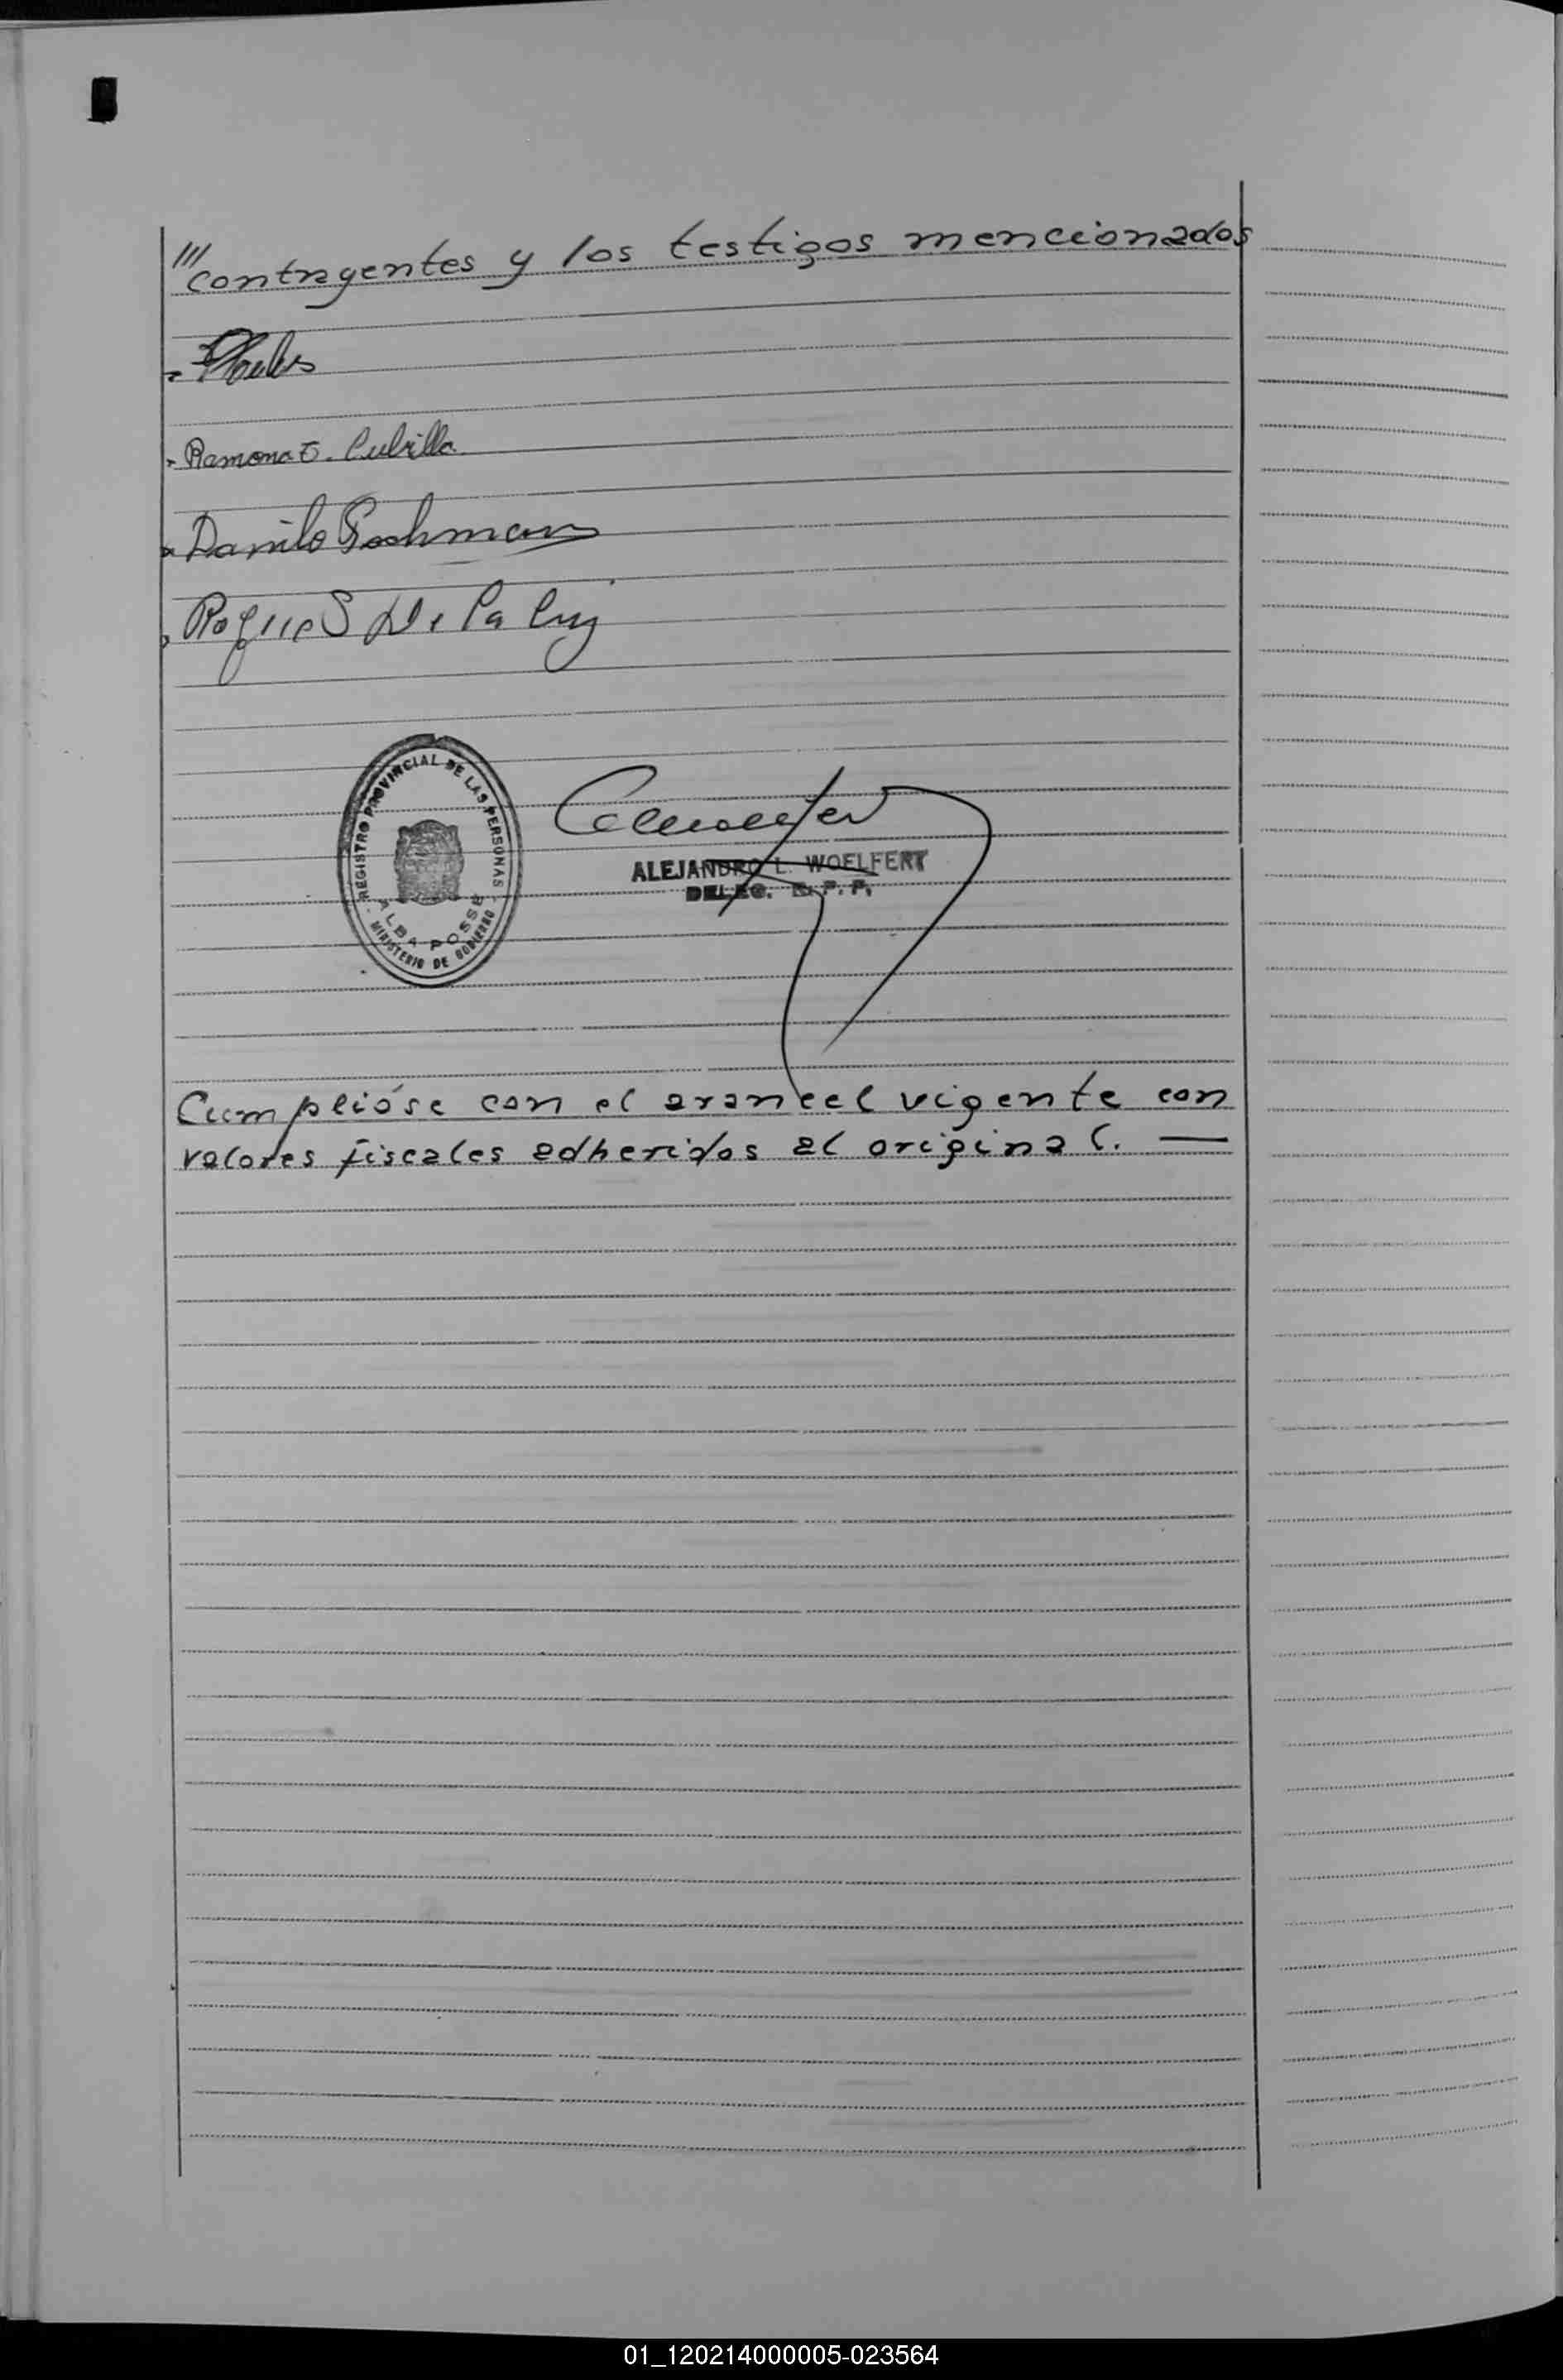 ///
contrayentes y los testigos mencionados
Ramona E. Cubilla
Danilo Pochmann
Roque S De La Cruz
REGISTRO PROVINCIAL DE LAS PERSONAS
ALBA POSSE
MINISTERIO DE GOBIERNO
ALEJANDRO L. WOELFERT
DELEG. R. P. P.
Cumplióse con el arancel vigente con
valores fiscales adheridos al original. —
01_120214000005-023564